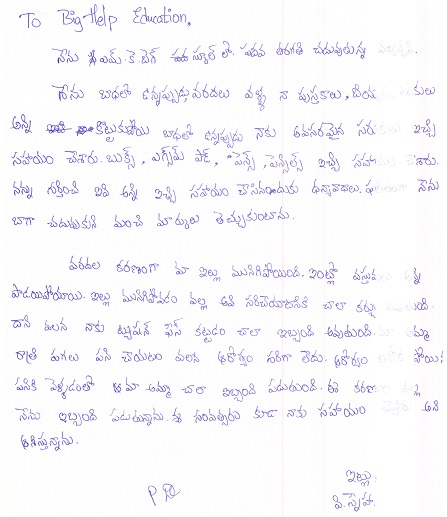 To Big-Help Education,
నేను ఎమ్. కె. బెగ్ స్కూల్ లో. పదవ తరగతి చదువుతున్న
నేను బాధలో ఉన్నప్పుడు, వరదలు వల్ల నా పుస్తకాలు,
అన్ని కొట్టుకుపోయి బాధలో ఉన్నప్పుడు నాకు అవసరమైన ఇచ్చి
సహాయం చేశారు. బుక్స్, ఎగ్జామ్ పాడ్, పెన్స్, పెన్సిల్స్ ఇచ్చి
నన్ను గుర్తించి ఇవి అన్ని ఇచ్చి సహాయం చేసినందుకు ధన్యవాదాలు. నేను
బాగా చదువుకుని మంచి మార్కులు తెచ్చుకుంటాను.
వరదల కారణంగా మా ఇల్లు మునిగిపోయింది. ఇంట్లో అన్ని
పాడయిపోయాయి. ఇల్లు మునిగిపోవడం వల్ల అవి సరిచేయడానికి చాలా
దాని వలన నాకు ట్యుషన్ ఫీస్ కట్టడం చాలా ఇబ్బంది అవుతుంది. అమ్మ
రాత్రి పగలు పని చేయటం వలన ఆరోగ్యం సరిగా లేదు. ఆరోగ్యం
పనికి వెళ్ళడంతో మా అమ్మా చాలా ఇబ్బంది పడుతుంది. ఈ
నేను ఇబ్బంది పడుతున్నాను. ఈ సంవత్సరం కూడా నాకు సహాయం అని
ఆశిస్తున్నాను.
ఇట్లు
పి. స్నేహ.